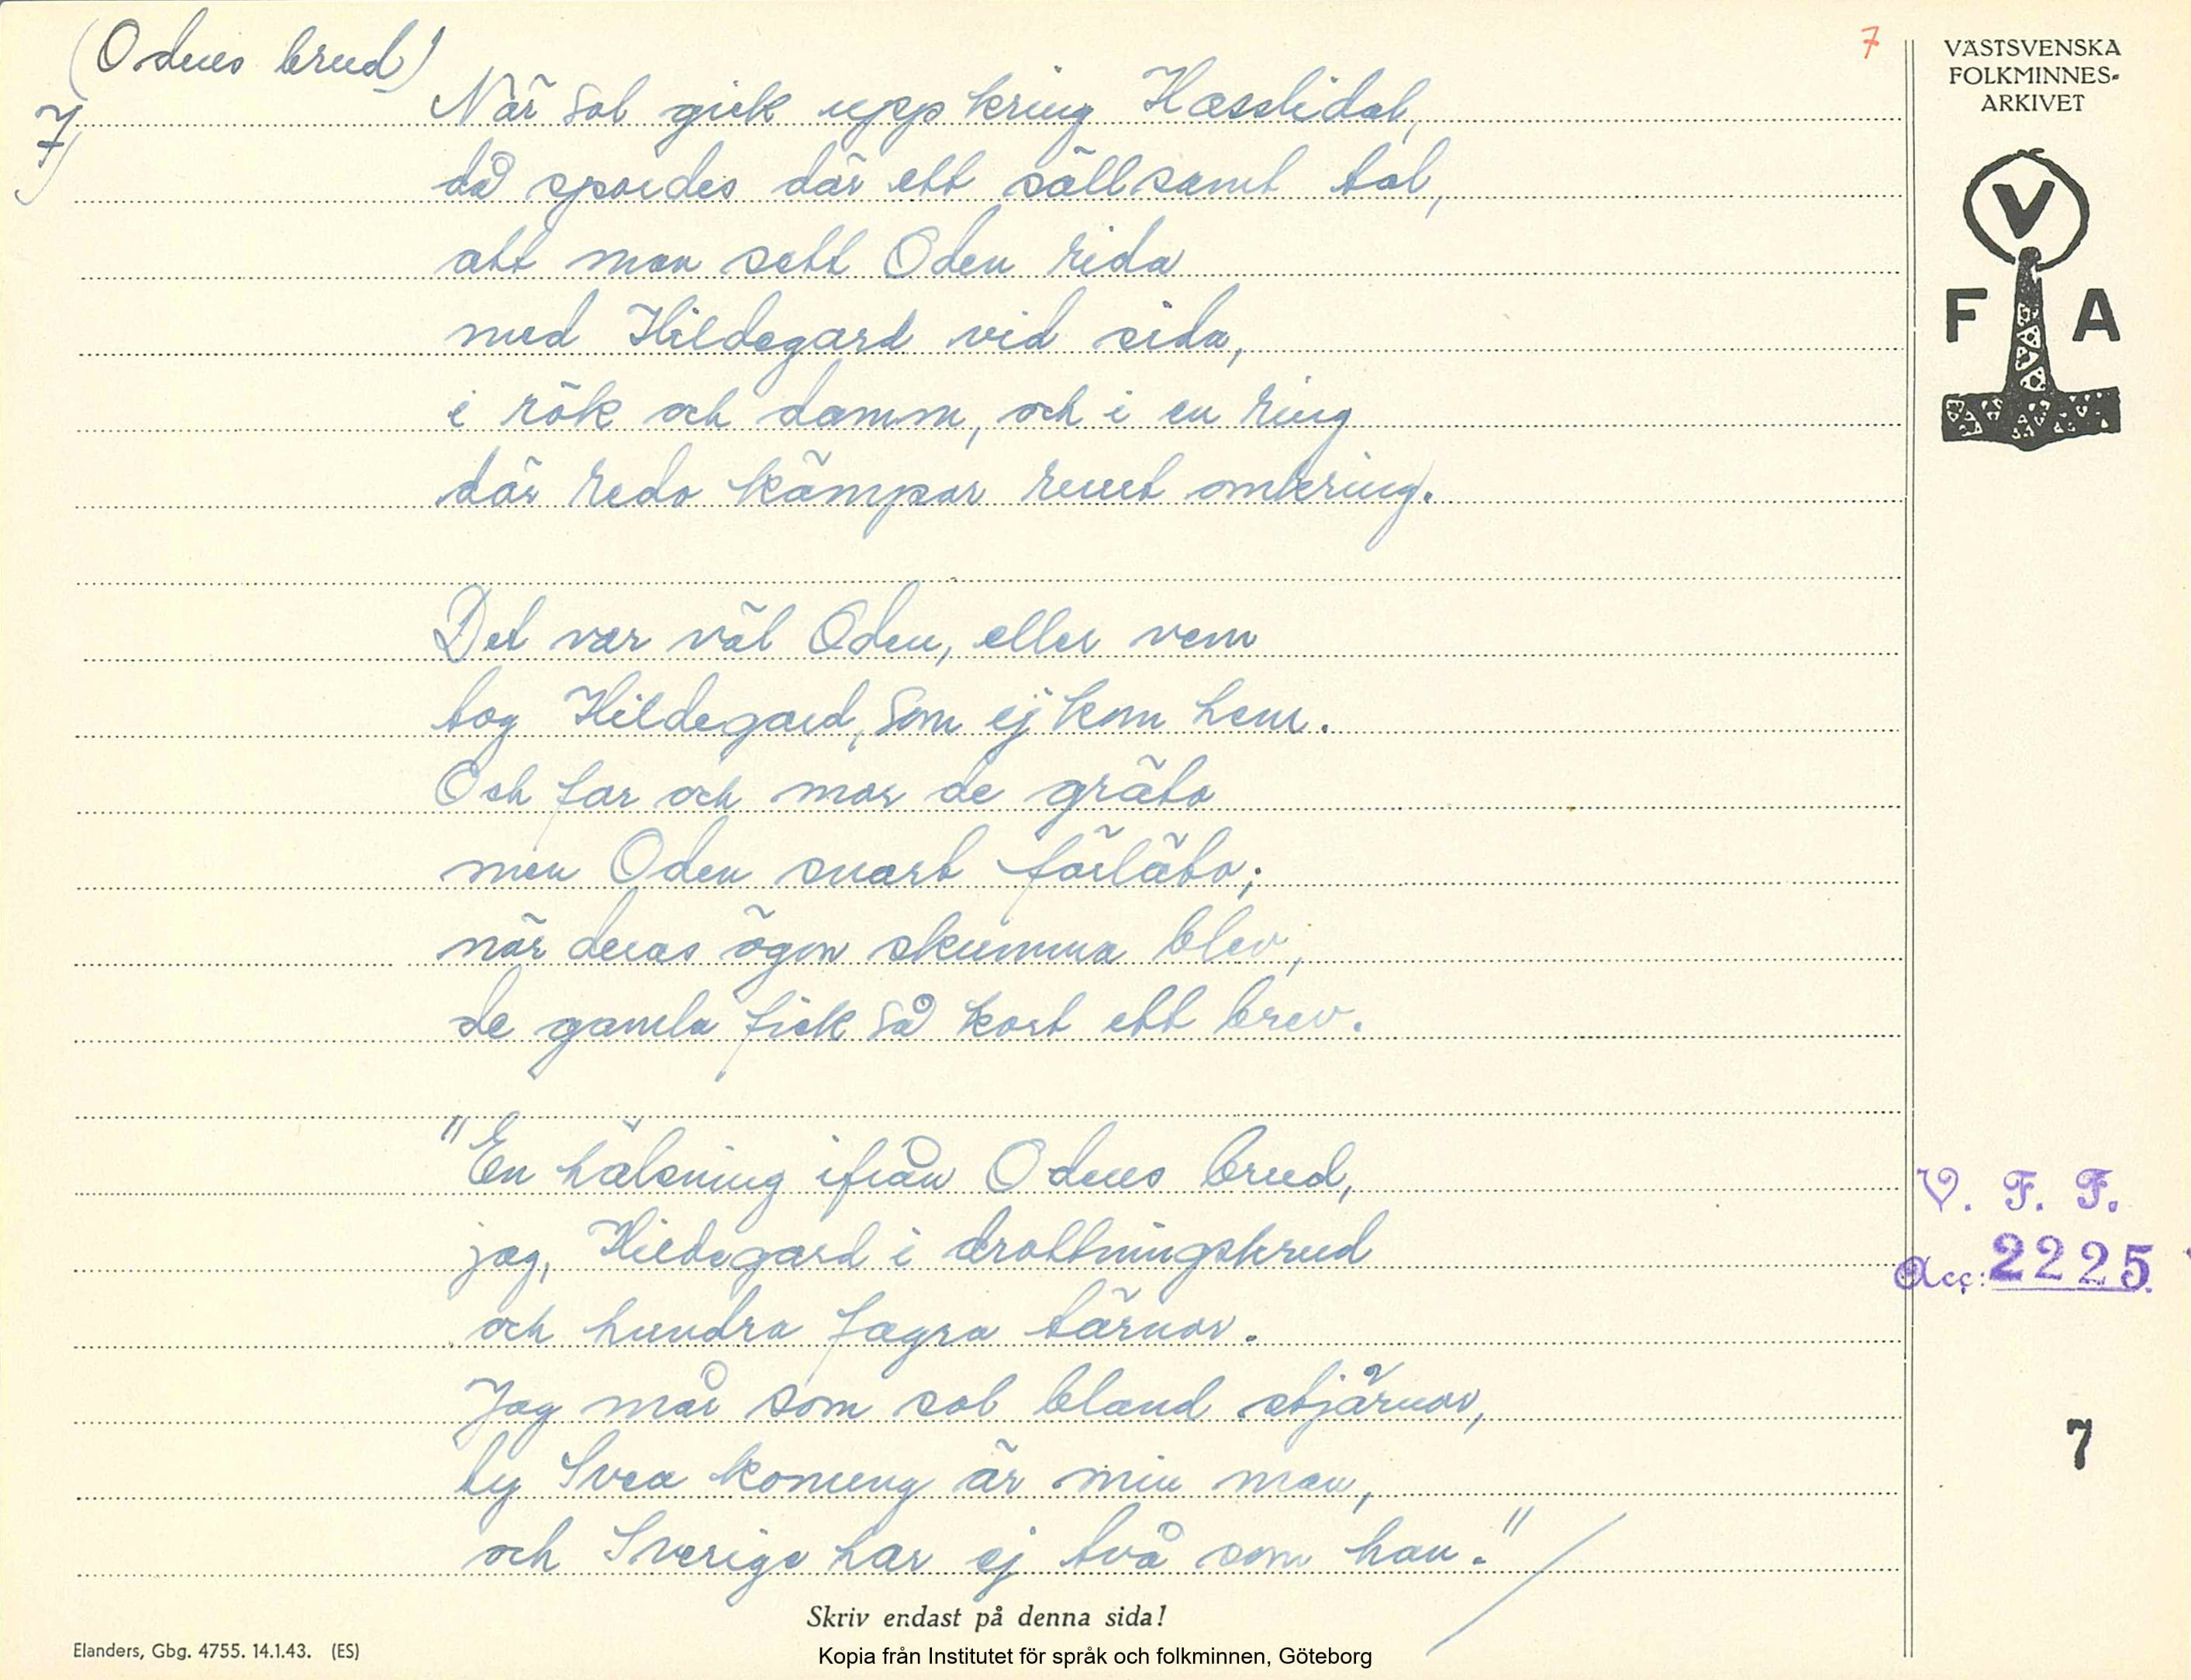 (Odens brud)
7)
7
När sol gick upp kring Kasslidal,
då spordes där ett sällsamt tal,
att man sett Oden rida
med Hildegard vid sida,
i rök och damm, och i en ring
där redo kämpar runt omkring.
Det var väl Oden, eller vem
tog Hildegard, som ej kom hem.
Och far och mor de gräto
men Oden snart förläto;
när deras ögon skumma blev,
de gamla fick så kort ett brev.
"En hälsning ifrån Odens brud,
jag, Hildegard i drottningskrud
och hundra fagra tärnor.
Jag mår som sol bland stjärnor,
ty Svea konung är min man,
och Sverige har ej två som han."
Skriv endast på denna sida!
Elanders, Gbg. 4755. 14.1.43. (ES)
Kopia från Institutet för språk och folkminnen, Göteborg
VÄSTSVENSKA
FOLKMINNES-
ARKIVET
V
F A
V. F. F.
Acc: 2225.
7